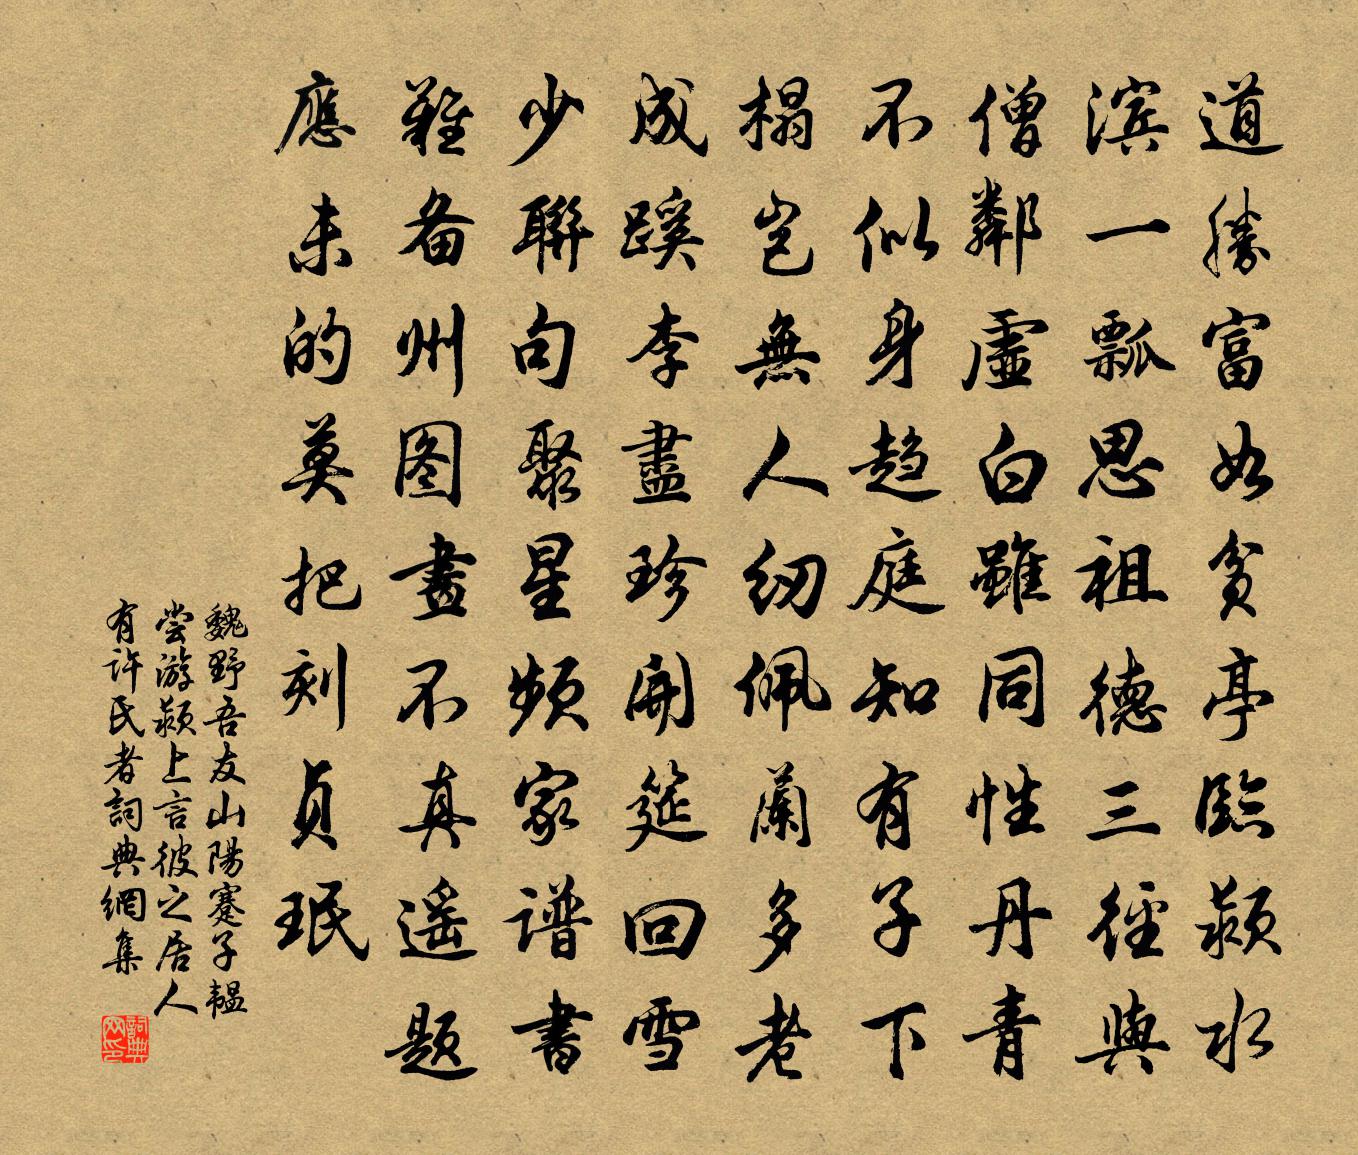 道勝富如貧亭臨潁水
濱一瓢思祖德三徑與
僧鄰虛白雖同性丹青
不似身趋庭知有子下
榻岂無人纫佩蘭多老
成蹊李盡珍開筵回雪
少聯句聚星頻家谱書
難备州图畫不真遥题
應未的莫把刻貞珉
魏野吾友山陽蹇子韞
尝游潁上言彼之居人
有許氏者詞典網集
詞典